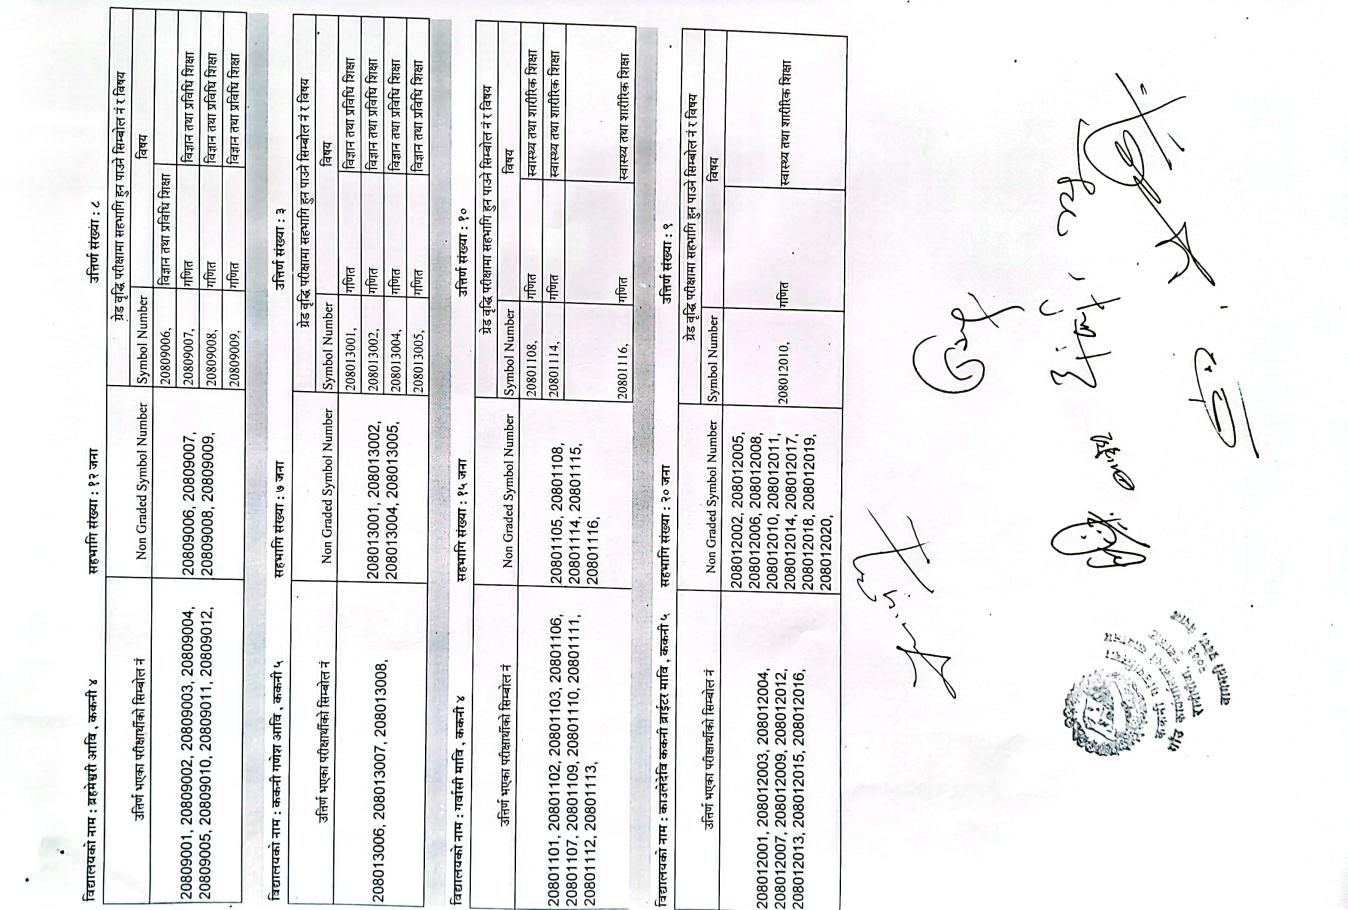 विद्यालयको नाम : ब्रह्मेश्वरी आवि , ककनी ४ सहभागि संख्या : १२ जना उत्तिर्ण संख्या : ८
उत्तिर्ण भएका परीक्षार्थीको सिम्बोल नं Non Graded Symbol Number ग्रेड वृद्धि परीक्षामा सहभागि हुन पाउने सिम्बोल नं र विषय
Symbol Number विषय
20809001, 20809002, 20809003, 20809004,
20809005, 20809010, 20809011, 20809012,
20809006, 20809007,
20809008, 20809009,
20809006, विज्ञान तथा प्रविधि शिक्षा
20809007, गणित विज्ञान तथा प्रविधि शिक्षा
20809008, गणित विज्ञान तथा प्रविधि शिक्षा
20809009, गणित विज्ञान तथा प्रविधि शिक्षा
विद्यालयको नाम : ककनी गणेश आवि , ककनी ५ सहभागि संख्या : ७ जना उत्तिर्ण संख्या : ३
उत्तिर्ण भएका परीक्षार्थीको सिम्बोल नं Non Graded Symbol Number ग्रेड वृद्धि परीक्षामा सहभागि हुन पाउने सिम्बोल नं र विषय
Symbol Number विषय
208013006, 208013007, 208013008,
208013001, 208013002,
208013004, 208013005,
208013001, गणित विज्ञान तथा प्रविधि शिक्षा
208013002, गणित विज्ञान तथा प्रविधि शिक्षा
208013004, गणित विज्ञान तथा प्रविधि शिक्षा
208013005, गणित विज्ञान तथा प्रविधि शिक्षा
विद्यालयको नाम : गर्वासी मावि , ककनी ४ सहभागि संख्या : १५ जना उत्तिर्ण संख्या : १०
उत्तिर्ण भएका परीक्षार्थीको सिम्बोल नं Non Graded Symbol Number ग्रेड वृद्धि परीक्षामा सहभागि हुन पाउने सिम्बोल नं र विषय
Symbol Number विषय
20801101, 20801102, 20801103, 20801106,
20801107, 20801109, 20801110, 20801111,
20801112, 20801113,
20801105, 20801108,
20801114, 20801115,
20801116,
20801108, गणित स्वास्थ्य तथा शारीरिक शिक्षा
20801114, गणित स्वास्थ्य तथा शारीरिक शिक्षा
20801116, गणित स्वास्थ्य तथा शारीरिक शिक्षा
विद्यालयको नाम : काउलेदेवि ककनी ब्राईटर मावि , ककनी ५ सहभागि संख्या : २० जना उत्तिर्ण संख्या : ९
उत्तिर्ण भएका परीक्षार्थीको सिम्बोल नं Non Graded Symbol Number ग्रेड वृद्धि परीक्षामा सहभागि हुन पाउने सिम्बोल नं र विषय
Symbol Number विषय
208012001, 208012003, 208012004,
208012007, 208012009, 208012012,
208012013, 208012015, 208012016,
208012002, 208012005,
208012006, 208012008,
208012010, 208012011,
208012014, 208012017,
208012018, 208012019,
208012020,
208012010, गणित स्वास्थ्य तथा शारीरिक शिक्षा